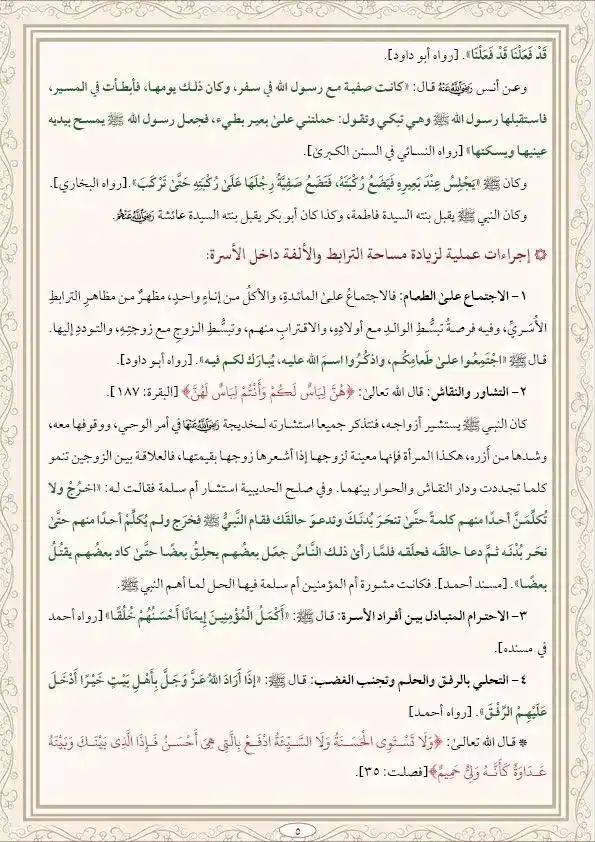 قَدْ فَعَلْنَا قَدْ فَعَلْنَا». [رواه أبو داود].
وعن أنس رضي الله عنه قال: «كانت صفية مع رسول الله في سفر، وكان ذلك يومها، فأبطأت في المسير،
فاستقبلها رسول الله ﷺ وهي تبكي وتقول: حملتني علىٰ بعير بطيء، فجعل رسول الله ﷺ يمسح بيديه
عينيها ويسكتها» [رواه النسائي في السنن الكبرىٰ].
وكان ﷺ «يَجْلِسُ عِنْدَ بَعِيرِهِ فَيَضَعُ رُكْبَتَهُ، فَتَضَعُ صَفِيَّةُ رِجْلَهَا عَلَىٰ رُكْبَتِهِ حَتَّىٰ تَرْكَبَ». [رواه البخاري].
وكان النبي ﷺ يقبل بنته السيدة فاطمة، وكذا كان أبو بكر يقبل بنته السيدة عائشة رضي الله عنهم.
۞ إجراءات عملية لزيادة مساحة الترابط والألفة داخل الأسرة:
١- الاجتماع علىٰ الطعام: فالاجتماعُ علىٰ المائدةِ، والأكلُ من إناءٍ واحدٍ، مظهرٌ من مظاهرِ الترابطِ
الأُسَريِّ، وفيه فرصةُ تبسُّطِ الوالدِ مع أولادِه، والاقترابِ منهم، وتبسُّطِ الزوجِ مع زوجتِه، والتوددِ إليها.
قال ﷺ «اجْتَمِعُوا علىٰ طَعامِكُم، واذكُرُوا اسمَ الله عليه، يُبارَك لكم فيه». [رواه أبو داود].
٢- التشاور والنقاش: قال الله تعالىٰ: ﴿هُنَّ لِبَاسٌ لَّكُمْ وَأَنتُمْ لِبَاسٌ لَّهُنَّ﴾ [البقرة: ١٨٧].
كان النبي ﷺ يستشير أزواجه، فنتذكر جميعا استشارته لخديجة رضي الله عنها في أمر الوحي، ووقوفها معه،
وشدها من أَزره، هكذا المرأة فإنها معينة لزوجها إذا أشعرها زوجها بقيمتها، فالعلاقة بين الزوجين تنمو
كلما تجددت ودار النقاش والحوار بينهما. وفي صلح الحديبية استشار أم سلمة فقالت له: «اخرُجْ ولا
تُكلِّمَنَّ أحدًا منهم كلمةً حتَّىٰ تنحَرَ بُدْنَكَ وتدعوَ حالقَك فقام النَّبيُّ ﷺ فخرَج ولم يُكلِّمْ أحدًا منهم حتَّىٰ
نحَر بُدْنَه ثمَّ دعا حالقَه فحلَقه فلمَّا رأىٰ ذلك النَّاسُ جعَل بعضُهم يحلِقُ بعضًا حتَّىٰ كاد بعضُهم يقتُلُ
بعضًا». [مسند أحمد]. فكانت مشورة أم المؤمنين أم سلمة فيها الحل لما أهم النبي ﷺ.
٣- الاحترام المتبادل بين أفراد الأسرة: قال ﷺ: «أَكْمَلُ الْمُؤْمِنِينَ إِيمَانًا أَحْسَنُهُمْ خُلُقًا» [رواه أحمد
في مسنده].
٤- التحلي بالرفق والحلم وتجنب الغضب: قال ﷺ: «إِذَا أَرَادَ اللهُ عَزَّ وَجَلَّ بِأَهْلِ بَيْتٍ خَيْرًا أَدْخَلَ
عَلَيْهِمُ الرِّفْقَ». [رواه أحمد]
* قال الله تعالىٰ: ﴿وَلَا تَسْتَوِى الْحَسَنَةُ وَلَا السَّيِّئَةُ ادْفَعْ بِالَّتِى هِىَ أَحْسَنُ فَإِذَا الَّذِى بَيْنَكَ وَبَيْنَهُ
عَدَاوَةٌ كَأَنَّهُ وَلِىٌّ حَمِيمٌ﴾ [فصلت: ٣٥].
٥